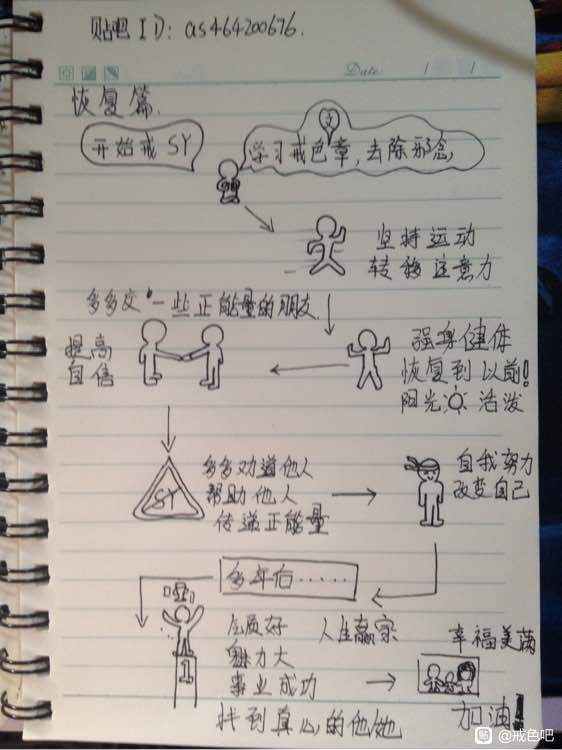 贴吧 ID: as464200676.
Date: / /
恢复篇.
开始戒 SY
学习戒色文章,去除邪念,
坚持运动
转移注意力
多多交一些正能量的朋友
提高
自信
强身健体
恢复到以前!
阳光 活泼
SY
多多劝道他人
帮助他人
传递正能量
自我努力
改变自己
多年后......
气质好 人生赢家
魅力大
事业成功
找到真心的他她
1
幸福美满
加油!
贴 @戒色吧